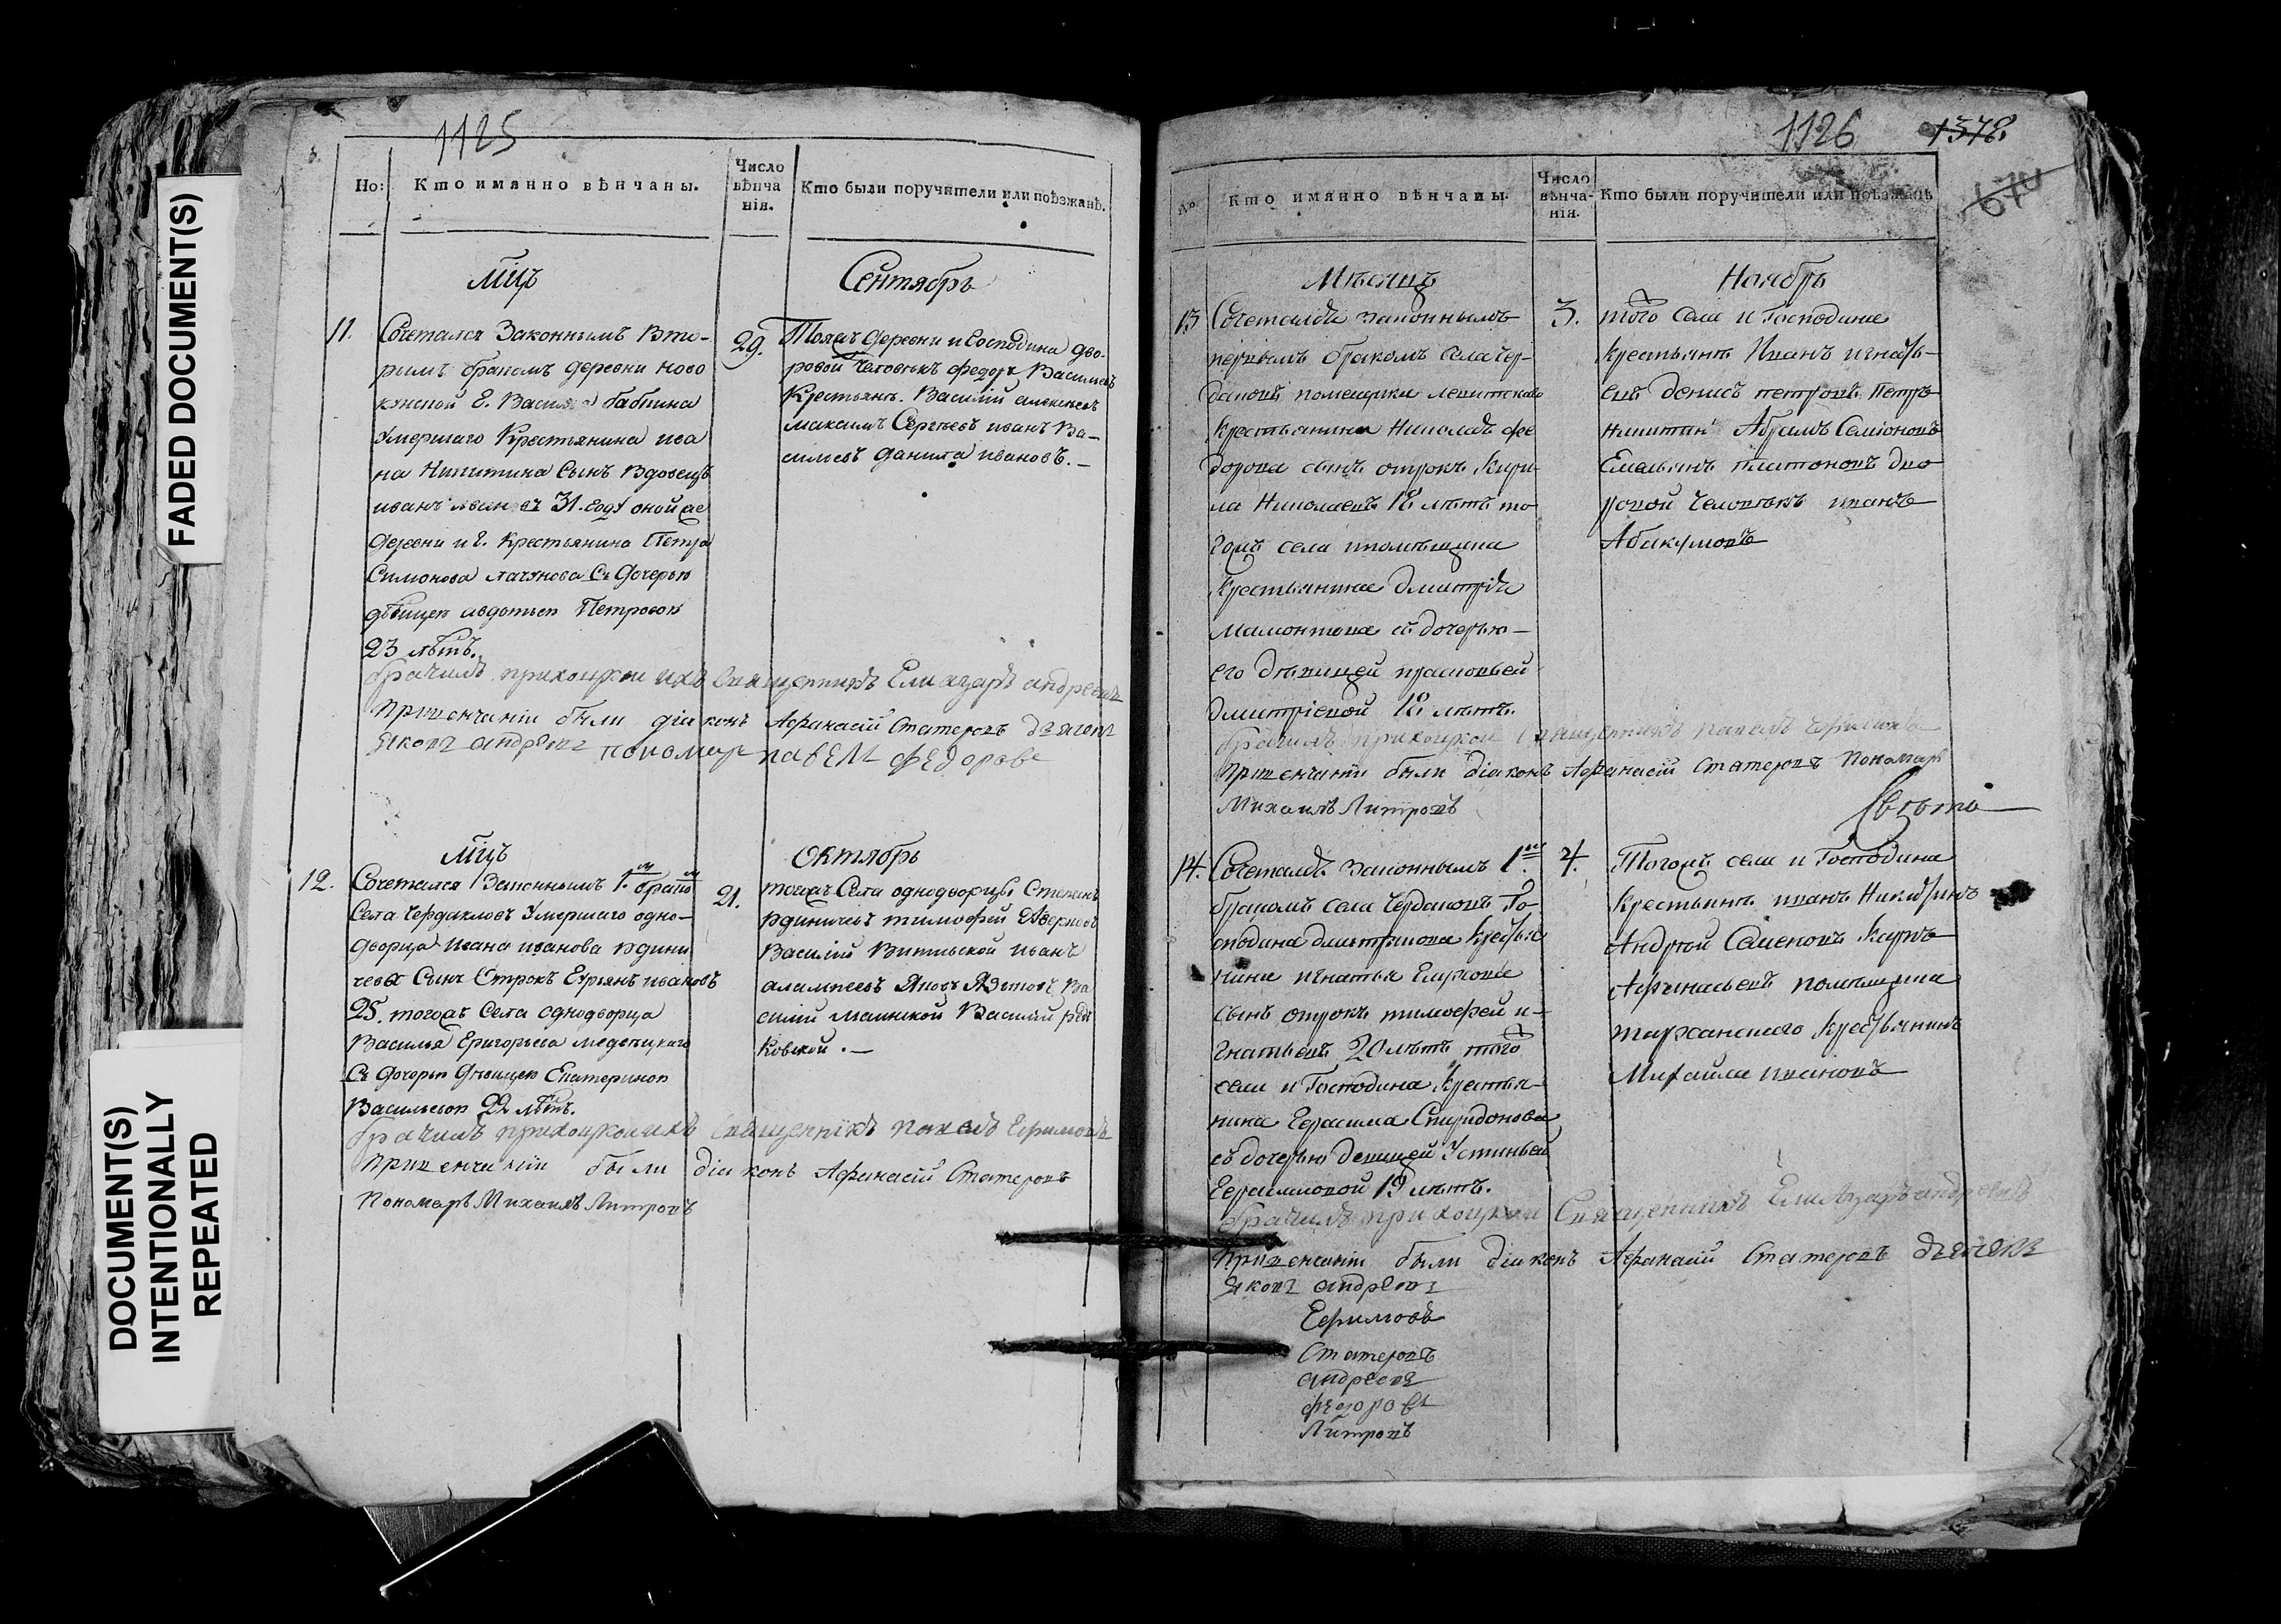 FADED DOCUMENT(S)
DOCUMENT(S)
INTENTIONALLY
REPEATED
1125
Но:
Кто имянно вѣнчаны.
Число
вѣнча
нія.
Кто были поручители или поѣзжанѣ.
Мцъ
Сентябрь
11.
Сочетался Законнымъ Вто-
рымъ бракомъ деревни ново
Г. Василья бабкина
Умершаго Крестьянина ива
на Никитина Сынъ Вдовецъ
иванъ 31. году оной же
деревни и г. Крестьянина Петра
Симонова Съ дочерью
девицею авдотьею Петровою
23 лѣтъ.
29.
Тояжъ деревни и Господина дво-
ровой Человѣкъ федоръ Васильевъ
Крестьянъ. Василій алексеевъ
максимъ Сергѣевъ иванъ Ва-
сильевъ данила ивановъ.—
брачилъ приходцкой ихъ Священникъ Елиазаръ андреевъ
При венчаніи были діаконъ Афанасій Статеровъ дьячокъ
Яковъ андреевъ пономарь павелъ федоровъ
Мцъ
Октябрь
12.
Сочетался Законнымъ 1.мъ бракомъ
Села Чердаковъ Умершаго одно-
дворца Ивана иванова
Сынъ Отрокъ ивановъ
25. тогожъ Села однодворца
Василья Григорьева
Съ дочерью девицею Екатериною
Васильевою 22 лѣтъ.
21.
тогожъ Села однодворцы Степанъ
тимофей
Василій иванъ
Яковъ Ва
силій Василій
брачилъ приходцкой ихъ Священникъ павелъ Ефимовъ
При венчаніи были діаконъ Афанасій Статеровъ
Пономарь Михаилъ Литровъ
1126
1378.
674
Но
Кто имянно вѣнчаны.
Число
вѣнча-
нія.
Кто были поручители или поѣзжанѣ
Мѣсяцъ
Ноябрь
13
Сочетался законнымъ
первымъ бракомъ села Чер-
даковъ помещика левитскаго
крестьянина Николая фе
дорова сынъ отрокъ Кири-
ла Николаевъ 18 лѣтъ то
гожъ села и помѣщика
крестьянина Дмитрія
Мамонтова съ дочерью—
его дѣвицей прасковьей
дмитріевой 18 лѣтъ.
3.
того села и Господина
крестьянѣ Иванъ игнать-
евъ денисъ петровъ Петръ
никитин Абрамъ Семіоновъ
Емельянъ платоновъ дво
ровой человѣкъ иванъ
Абакумовъ
брачилъ приходцкой Священникъ павелъ Ефимовъ
При венчаніи были діаконъ Афанасій Статеровъ Пономарь
Михаилъ Литровъ
14.
Сочетался законнымъ 1.мъ
бракомъ села Чердаковъ Го-
сподина дмитриева крестья
нина игнатья
сынъ отрокъ тимофей и-
гнатьевъ 20 лѣтъ того
села и Господина крестья-
нина Герасима Спиридонова
съ дочерью девицей Устиньей
Герасимовой 19 лѣтъ.
4.
Тогожъ села и Господина
крестьянѣ иванъ
Андрей Семеновъ
Афанасьевъ помѣщика
крестьянинъ
Михайла ивановъ
брачилъ приходцкой Священникъ Елиазаръ андреевъ
При венчаніи были діаконъ Афанасій Статеровъ дьячокъ
Яковъ андреевъ
Ефимовъ
Статеровъ
андреевъ
федоровъ
Литровъ